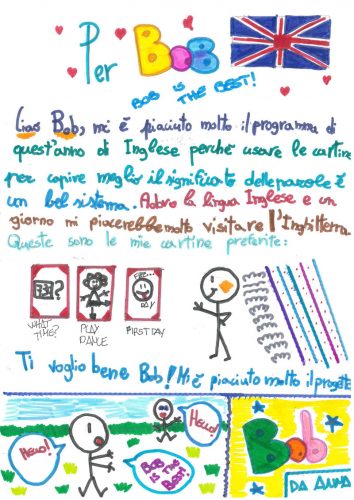 Per BOB
BOB IS THE BEST!
Ciao Bob, mi è piaciuto molto il programma di
quest'anno di Inglese perché usare le cartine
per capire meglio il significato delle parole è
un bel sistema. Adoro la lingua Inglese e un
giorno mi piacerebbe molto visitare l'Inghilterra.
Queste sono le mie cartine preferite:
WHAT TIME?
PLAY DANCE
DAY
FIRST DAY
Ti voglio bene Bob! Mi è piaciuto molto il progetto
Hello!
Hello!
BOB IS THE BEST!
Bob
DA ANNA